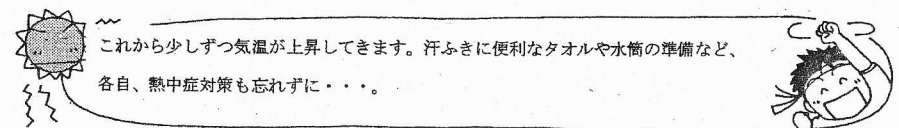 これから少しずつ気温が上昇してきます。汗ふきに便利なタオルや水筒の準備など、
各自、熱中症対策も忘れずに・・・。